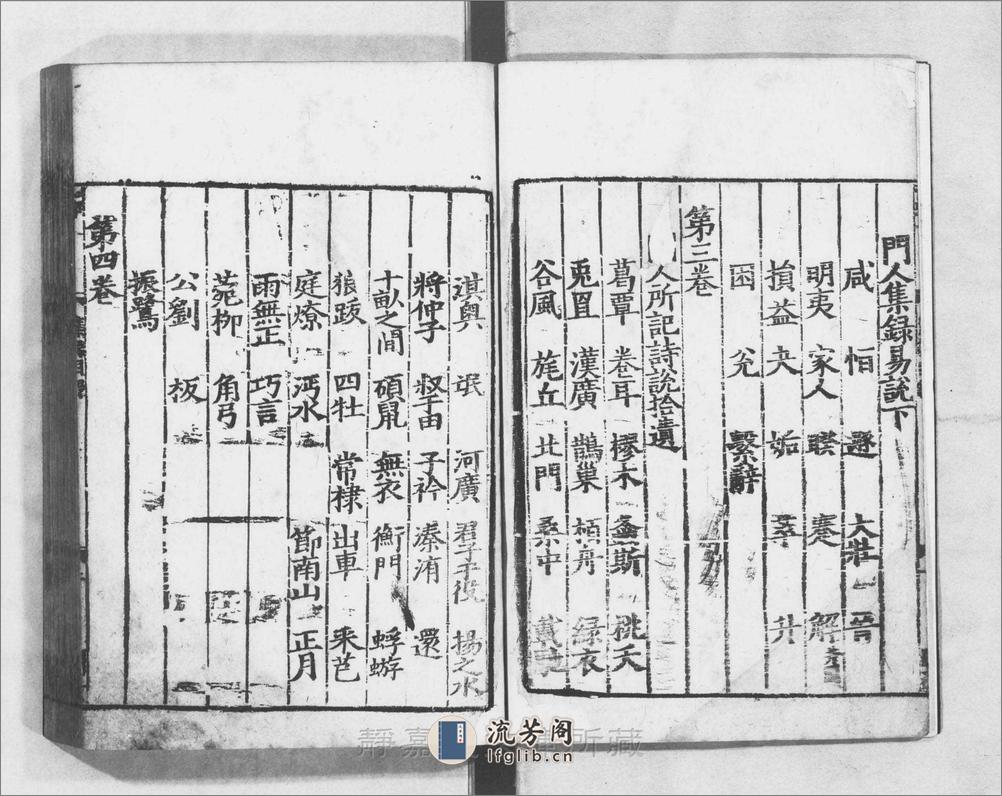 門人集録易說下
咸 恒 遯 大壯 晉
明夷 家人 睽 蹇 解
損益 夬 姤 萃 升
困 兌 繫辭
第三卷
人所記詩說拾遺
葛覃 卷耳 樛木 螽斯 桃夭
兎罝 漢廣 鵲巢 栢舟 緑衣
谷風 旄丘 北門 桑中
淇奧 氓 河廣 君子于役 揚之水
將仲子 叔于田 子衿 溱洧 還
十畝之間 碩鼠 無衣 衡門 蜉蝣
狼跋 四牡 常棣 出車 采芑
庭燎 沔水 節南山 正月
雨無正 巧言
菀柳 角弓
公劉 板
振鷺
第四卷
流芳阁
lfglib.cn